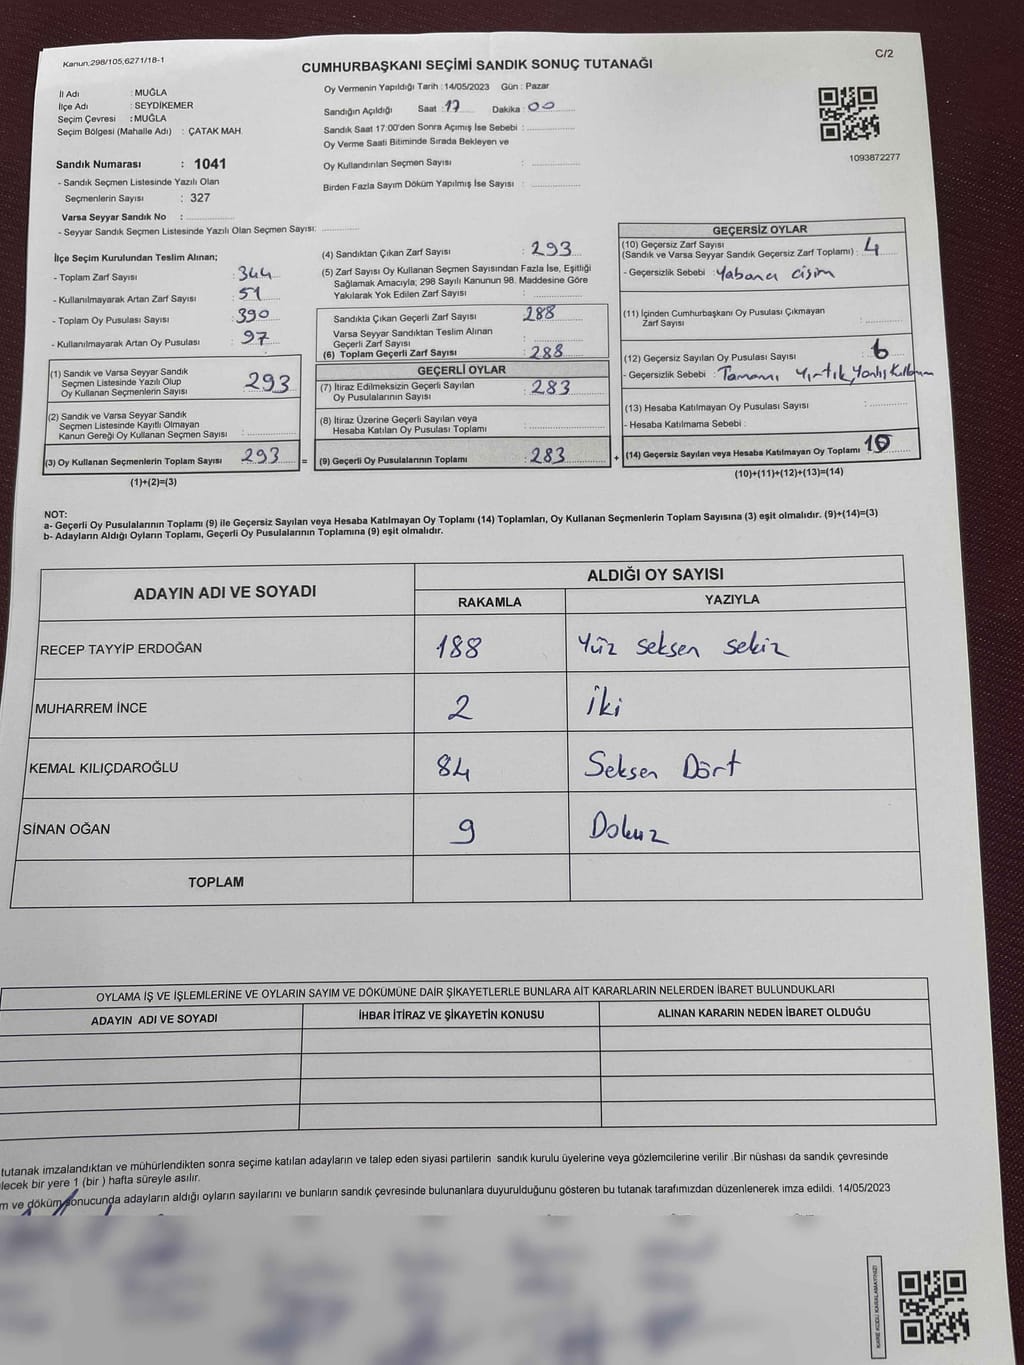 Kanun;298/105,6271/18-1
C/2
CUMHURBAŞKANI SEÇİMİ SANDIK SONUÇ TUTANAĞI
İl Adı : MUĞLA
İlçe Adı : SEYDİKEMER
Seçim Çevresi : MUĞLA
Seçim Bölgesi (Mahalle Adı) : ÇATAK MAH.
Sandık Numarası : 1041
- Sandık Seçmen Listesinde Yazılı Olan
Seçmenlerin Sayısı : 327
Varsa Seyyar Sandık No :
- Seyyar Sandık Seçmen Listesinde Yazılı Olan Seçmen Sayısı:
Oy Vermenin Yapıldığı Tarih : 14/05/2023 Gün : Pazar
Sandığın Açıldığı Saat : 17 Dakika : 00
Sandık Saat 17:00'den Sonra Açımış İse Sebebi :
Oy Verme Saati Bitiminde Sırada Bekleyen ve
Oy Kullandırılan Seçmen Sayısı :
Birden Fazla Sayım Döküm Yapılmış İse Sayısı :
1093872277
İlçe Seçim Kurulundan Teslim Alınan;
- Toplam Zarf Sayısı : 344
- Kullanılmayarak Artan Zarf Sayısı : 51
- Toplam Oy Pusulası Sayısı : 390
- Kullanılmayarak Artan Oy Pusulası : 97
(1) Sandık ve Varsa Seyyar Sandık
Seçmen Listesinde Yazılı Olup
Oy Kullanan Seçmenlerin Sayısı : 293
(2) Sandık ve Varsa Seyyar Sandık
Seçmen Listesinde Kayıtlı Olmayan
Kanun Gereği Oy Kullanan Seçmen Sayısı :
(3) Oy Kullanan Seçmenlerin Toplam Sayısı : 293 =
(1)+(2)=(3)
(4) Sandıktan Çıkan Zarf Sayısı : 293
(5) Zarf Sayısı Oy Kullanan Seçmen Sayısından Fazla İse, Eşitliği
Sağlamak Amacıyla; 298 Sayılı Kanunun 98. Maddesine Göre
Yakılarak Yok Edilen Zarf Sayısı :
Sandıkta Çıkan Geçerli Zarf Sayısı : 288
Varsa Seyyar Sandıktan Teslim Alınan
Geçerli Zarf Sayısı :
(6) Toplam Geçerli Zarf Sayısı : 288
GEÇERLİ OYLAR
(7) İtiraz Edilmeksizin Geçerli Sayılan
Oy Pusulasının Sayısı : 283
(8) İtiraz Üzerine Geçerli Sayılan veya
Hesaba Katılan Oy Pusulası Toplamı :
(9) Geçerli Oy Pusulalarının Toplamı : 283 +
GEÇERSİZ OYLAR
(10) Geçersiz Zarf Sayısı
(Sandık ve Varsa Seyyar Sandık Geçersiz Zarf Toplamı) : 4
- Geçersizlik Sebebi : Yabancı cisim
(11) İçinden Cumhurbaşkanı Oy Pusulası Çıkmayan
Zarf Sayısı :
(12) Geçersiz Sayılan Oy Pusulası Sayısı : 6
- Geçersizlik Sebebi : Tamamı Yırtık, Yanlış
(13) Hesaba Katılmayan Oy Pusulası Sayısı :
- Hesaba Katılmama Sebebi :
(14) Geçersiz Sayılan veya Hesaba Katılmayan Oy Toplamı : 10
(10)+(11)+(12)+(13)=(14)
NOT:
a- Geçerli Oy Pusulalarının Toplamı (9) ile Geçersiz Sayılan veya Hesaba Katılmayan Oy Toplamı (14) Toplamları, Oy Kullanan Seçmenlerin Toplam Sayısına (3) eşit olmalıdır. (9)+(14)=(3)
b- Adayların Aldığı Oyların Toplamı, Geçerli Oy Pusulalarının Toplamına (9) eşit olmalıdır.
ADAYIN ADI VE SOYADI
ALDIĞI OY SAYISI
RAKAMLA YAZIYLA
RECEP TAYYİP ERDOĞAN 188 Yüz seksen sekiz
MUHARREM İNCE 2 İki
KEMAL KILIÇDAROĞLU 84 Seksen Dört
SİNAN OĞAN 9 Dokuz
TOPLAM
OYLAMA İŞ VE İŞLEMLERİNE VE OYLARIN SAYIM VE DÖKÜMÜNE DAİR ŞİKAYETLERLE BUNLARA AİT KARARLARIN NELERDEN İBARET BULUNDUKLARI
ADAYIN ADI VE SOYADI İHBAR İTİRAZ VE ŞİKAYETİN KONUSU ALINAN KARARIN NEDEN İBARET OLDUĞU
tutanak imzalandıktan ve mühürlendikten sonra seçime katılan adayların ve talep eden siyasi partilerin sandık kurulu üyelerine veya gözlemcilerine verilir .Bir nüshası da sandık çevresinde
lecek bir yere 1 (bir ) hafta süreyle asılır.
m ve döküm sonucunda adayların aldığı oyların sayılarını ve bunların sandık çevresinde bulunanlara duyurulduğunu gösteren bu tutanak tarafımızdan düzenlenerek imza edildi. 14/05/2023
KARE KODU KARALAMAYINIZ!